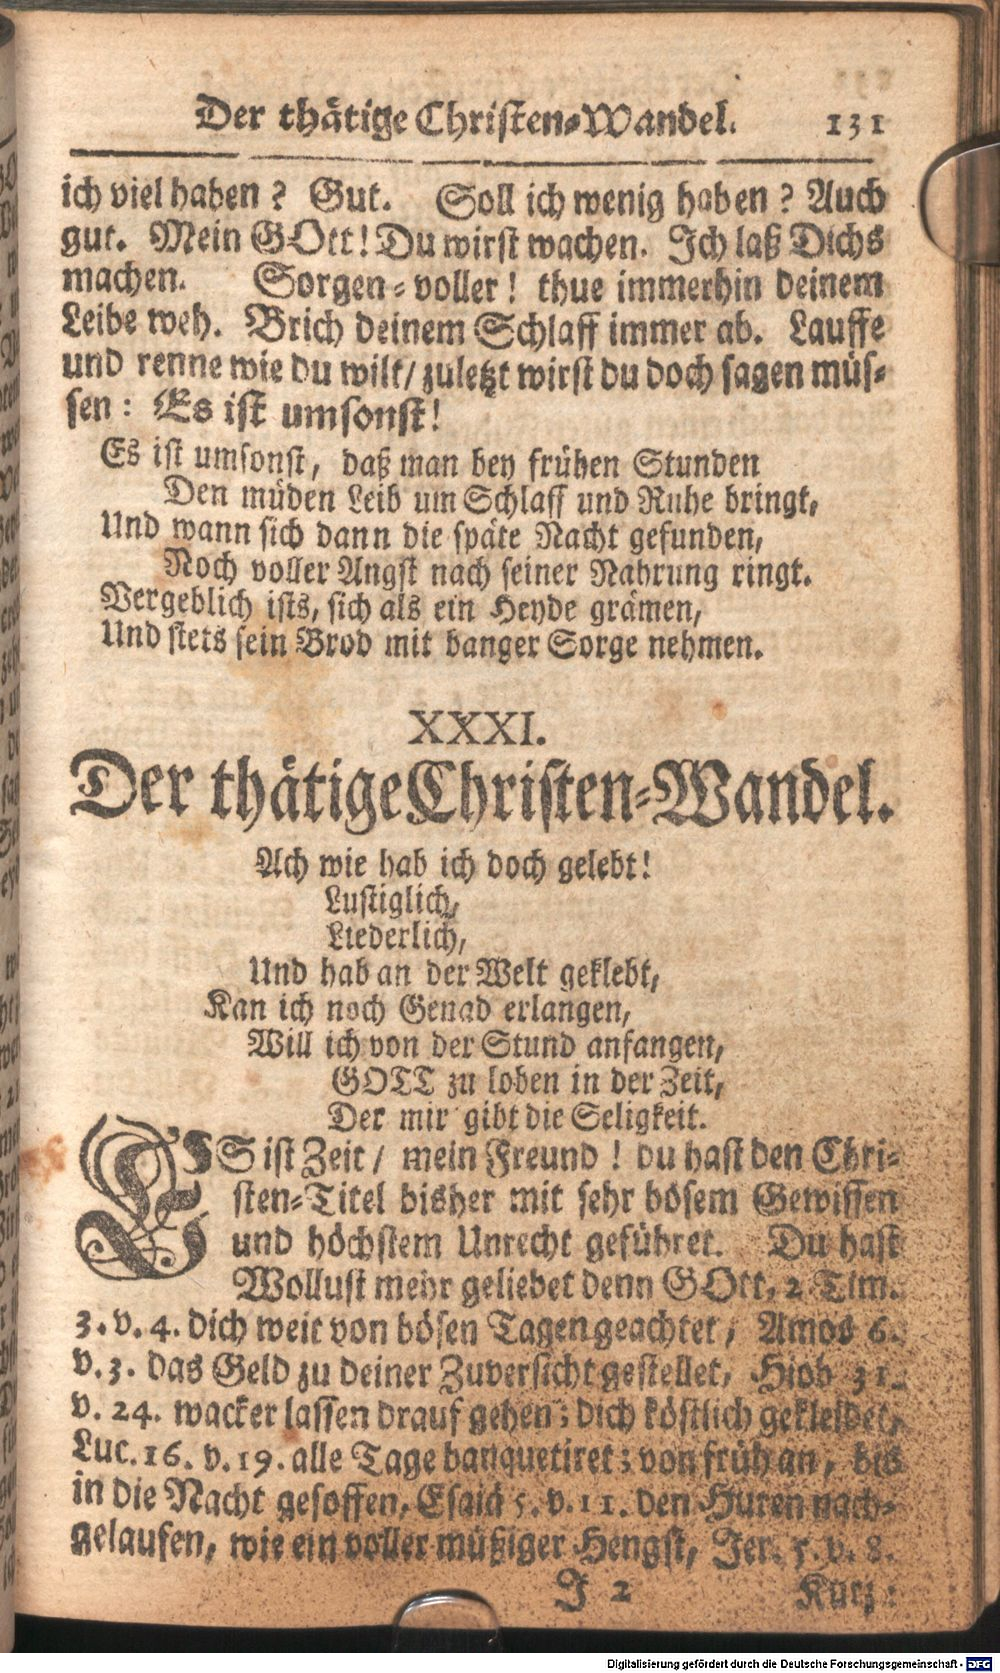 Der thätige Christen-Wandel. 131
ich viel haben? Gut. Soll ich wenig haben? Auch
gut. Mein GOtt! Du wirst wachen. Ich laß Dichs
machen. Sorgen-voller! thue immerhin deinem
Leibe weh. Brich deinem Schlaff immer ab. Lauffe
und renne wie du wilt/ zuletzt wirst du doch sagen müs-
sen: Es ist umsonst!
Es ist umsonst, daß man bey frühen Stunden
Den müden Leib um Schlaff und Ruhe bringt,
Und wann sich dann die späte Nacht gefunden,
Noch voller Angst nach seiner Nahrung ringt.
Vergeblich ists, sich als ein Heyde grämen,
Und stets sein Brod mit banger Sorge nehmen.
XXXI.
Der thätige Christen-Wandel.
Ach wie hab ich doch gelebt!
Lustiglich,
Liederlich,
Und hab an der Welt geklebt,
Kan ich noch Genad erlangen,
Will ich von der Stund anfangen,
GOTT zu loben in der Zeit,
Der mir gibt die Seligkeit.
ES ist Zeit/ mein Freund! du hast den Chri-
sten-Titel bisher mit sehr bösem Gewissen
und höchstem Unrecht geführet. Du hast
Wollust mehr geliebet denn GOtt, 2 Tim.
3. v. 4. dich weit von bösen Tagen geachtet, Amos 6.
v. 3. das Geld zu deiner Zuversicht gestellet, Hiob 31.
v. 24. wacker lassen drauf gehen; dich köstlich gekleidet,
Luc. 16. v. 19. alle Tage banquetiret; von früh an, bis
in die Nacht gesoffen, Esaiä 5. v. 11. den Huren nach-
gelaufen, wie ein voller müßiger Hengst, Jer. 5. v. 8.
J 2 Kurz:
Digitalisierung gefördert durch die Deutsche Forschungsgemeinschaft - DFG